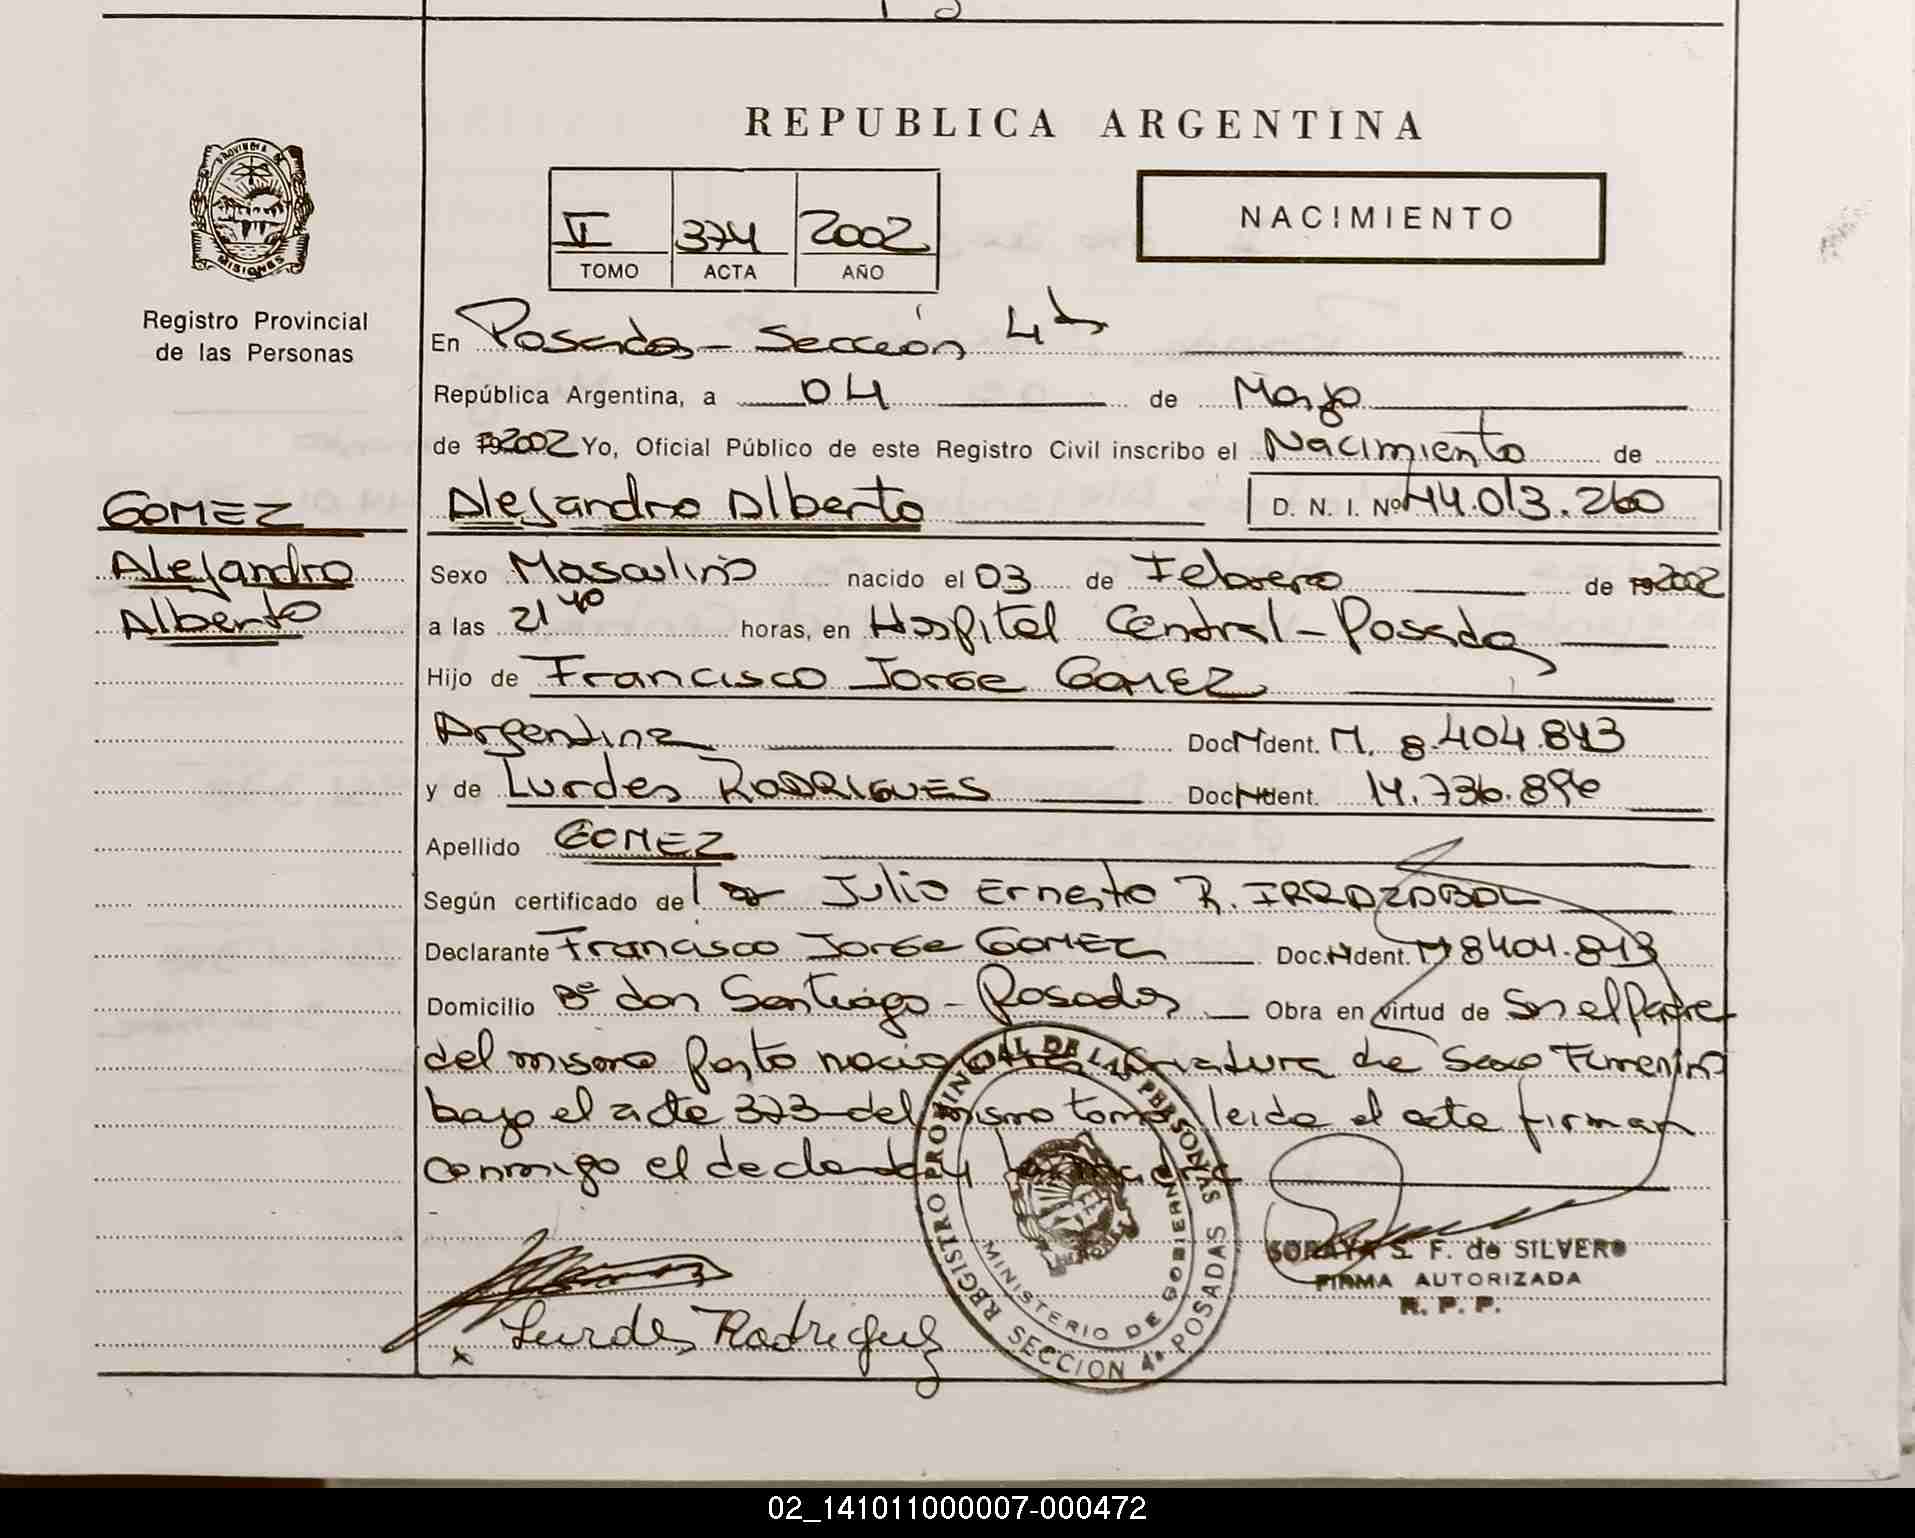 REPUBLICA ARGENTINA
PROVINCIA DE
MISIONES
Registro Provincial
de las Personas
VI 374 2002
TOMO ACTA AÑO
NACIMIENTO
En Posadas - Sección 4ta
República Argentina, a 04 de Marzo
de 192002 Yo, Oficial Público de este Registro Civil inscribo el Nacimiento de
GOMEZ
Alejandro
Alberto
Alejandro Alberto D. N. I. Nº 44.013.260
Sexo Masculino nacido el 03 de Febrero de 192002
a las 21 40 horas, en Hospital Central - Posadas
Hijo de Francisco Jorge GOMEZ
Argentina Doc. Ident. M. 8.404.843
y de Lurdes RODRIGUES Doc. Ident. 14.736.896
Apellido GOMEZ
Según certificado del Dr Julio Ernesto R. IRRAZABAL
Declarante Francisco Jorge GOMEZ Doc. Ident. M 8404.843
Domicilio Bº don Santiago - Posadas Obra en virtud de Ser el padre
del mismo parto nació otra criatura de Sexo Femenino
bajo el acta 373 del mismo tomo leida el acta firman
conmigo el declarante y la madre
REGISTRO PROVINCIAL DE LAS PERSONAS
MINISTERIO DE GOBIERNO
SECCION 4ª POSADAS
SORAYA S. F. de SILVERO
FIRMA AUTORIZADA
R. P. P.
x Lurdes Rodriguez
02_141011000007-000472